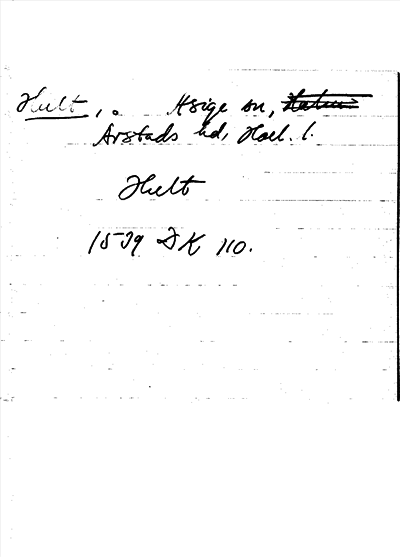 Hult, . Asige sn,
Årstads hd, Hall. l.
Hult
1539 DK 110.